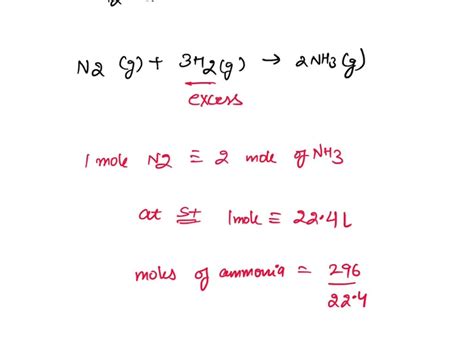 N2 (g) + 3H2(g) → 2NH3(g)
excess
1 mole N2 ≡ 2 mole of NH3
at St 1mole ≡ 22.4L
moles of ammonia = 296
22.4